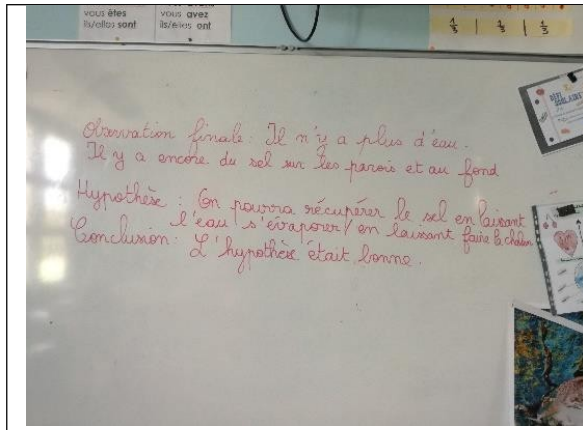 vous êtes
ils/elles sont
vous avez
ils/elles ont
1/3 | 1/3 | 1/3
Observation finale : Il n'y a plus d'eau.
Il y a encore du sel sur les parois et au fond
Hypothèse : On pourra récupérer le sel en laissant
l'eau s'évaporer/ en laissant faire la chaleur
Conclusion : L'hypothèse était bonne.